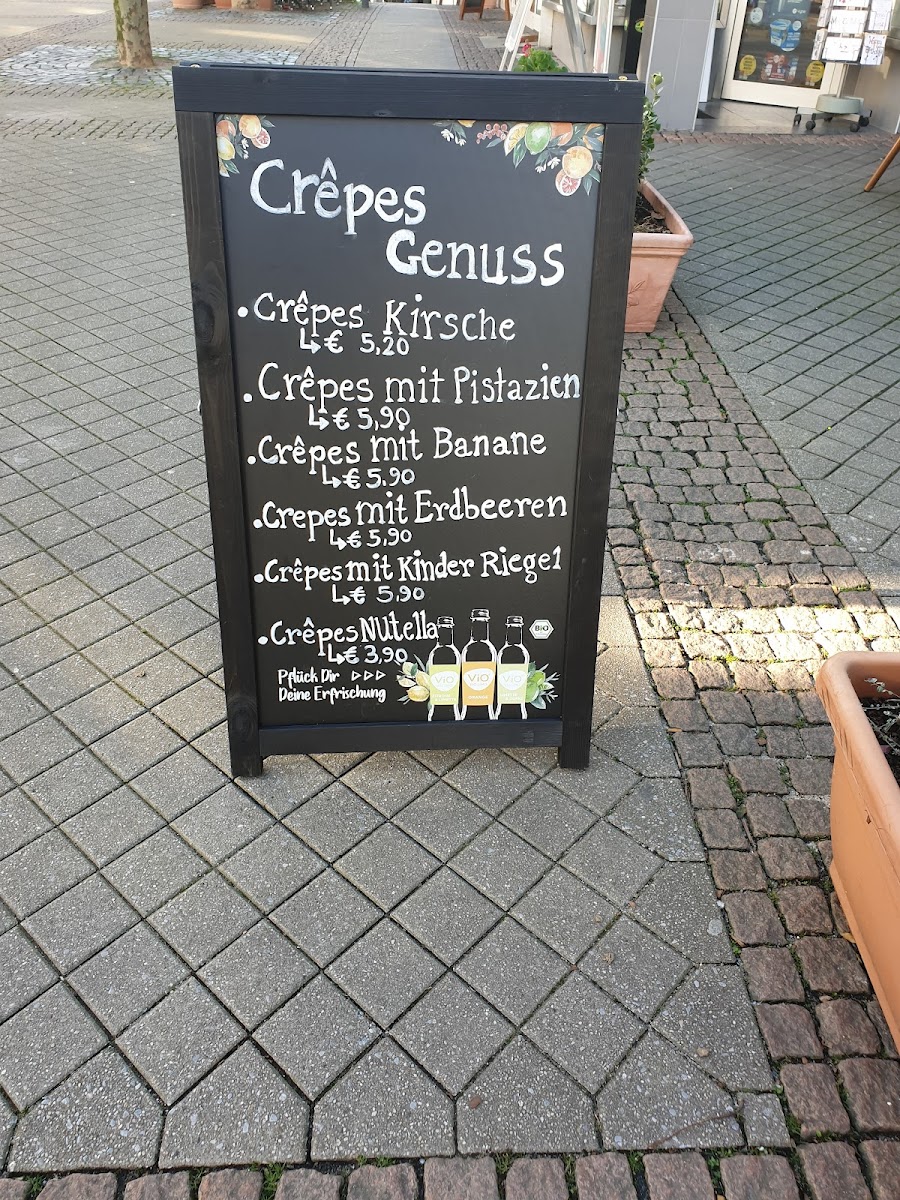 Crêpes
Genuss
• Crêpes Kirsche
↳ € 5,20
• Crêpes mit Pistazien
↳ € 5,90
• Crêpes mit Banane
↳ € 5.90
• Crepes mit Erdbeeren
↳ € 5,90
• Crêpes mit Kinder Riegel
↳ € 5,90
• Crêpes Nutella
↳ € 3,90
Pflück Dir ▷▷▷
Deine Erfrischung
BiO
ViO ViO ViO